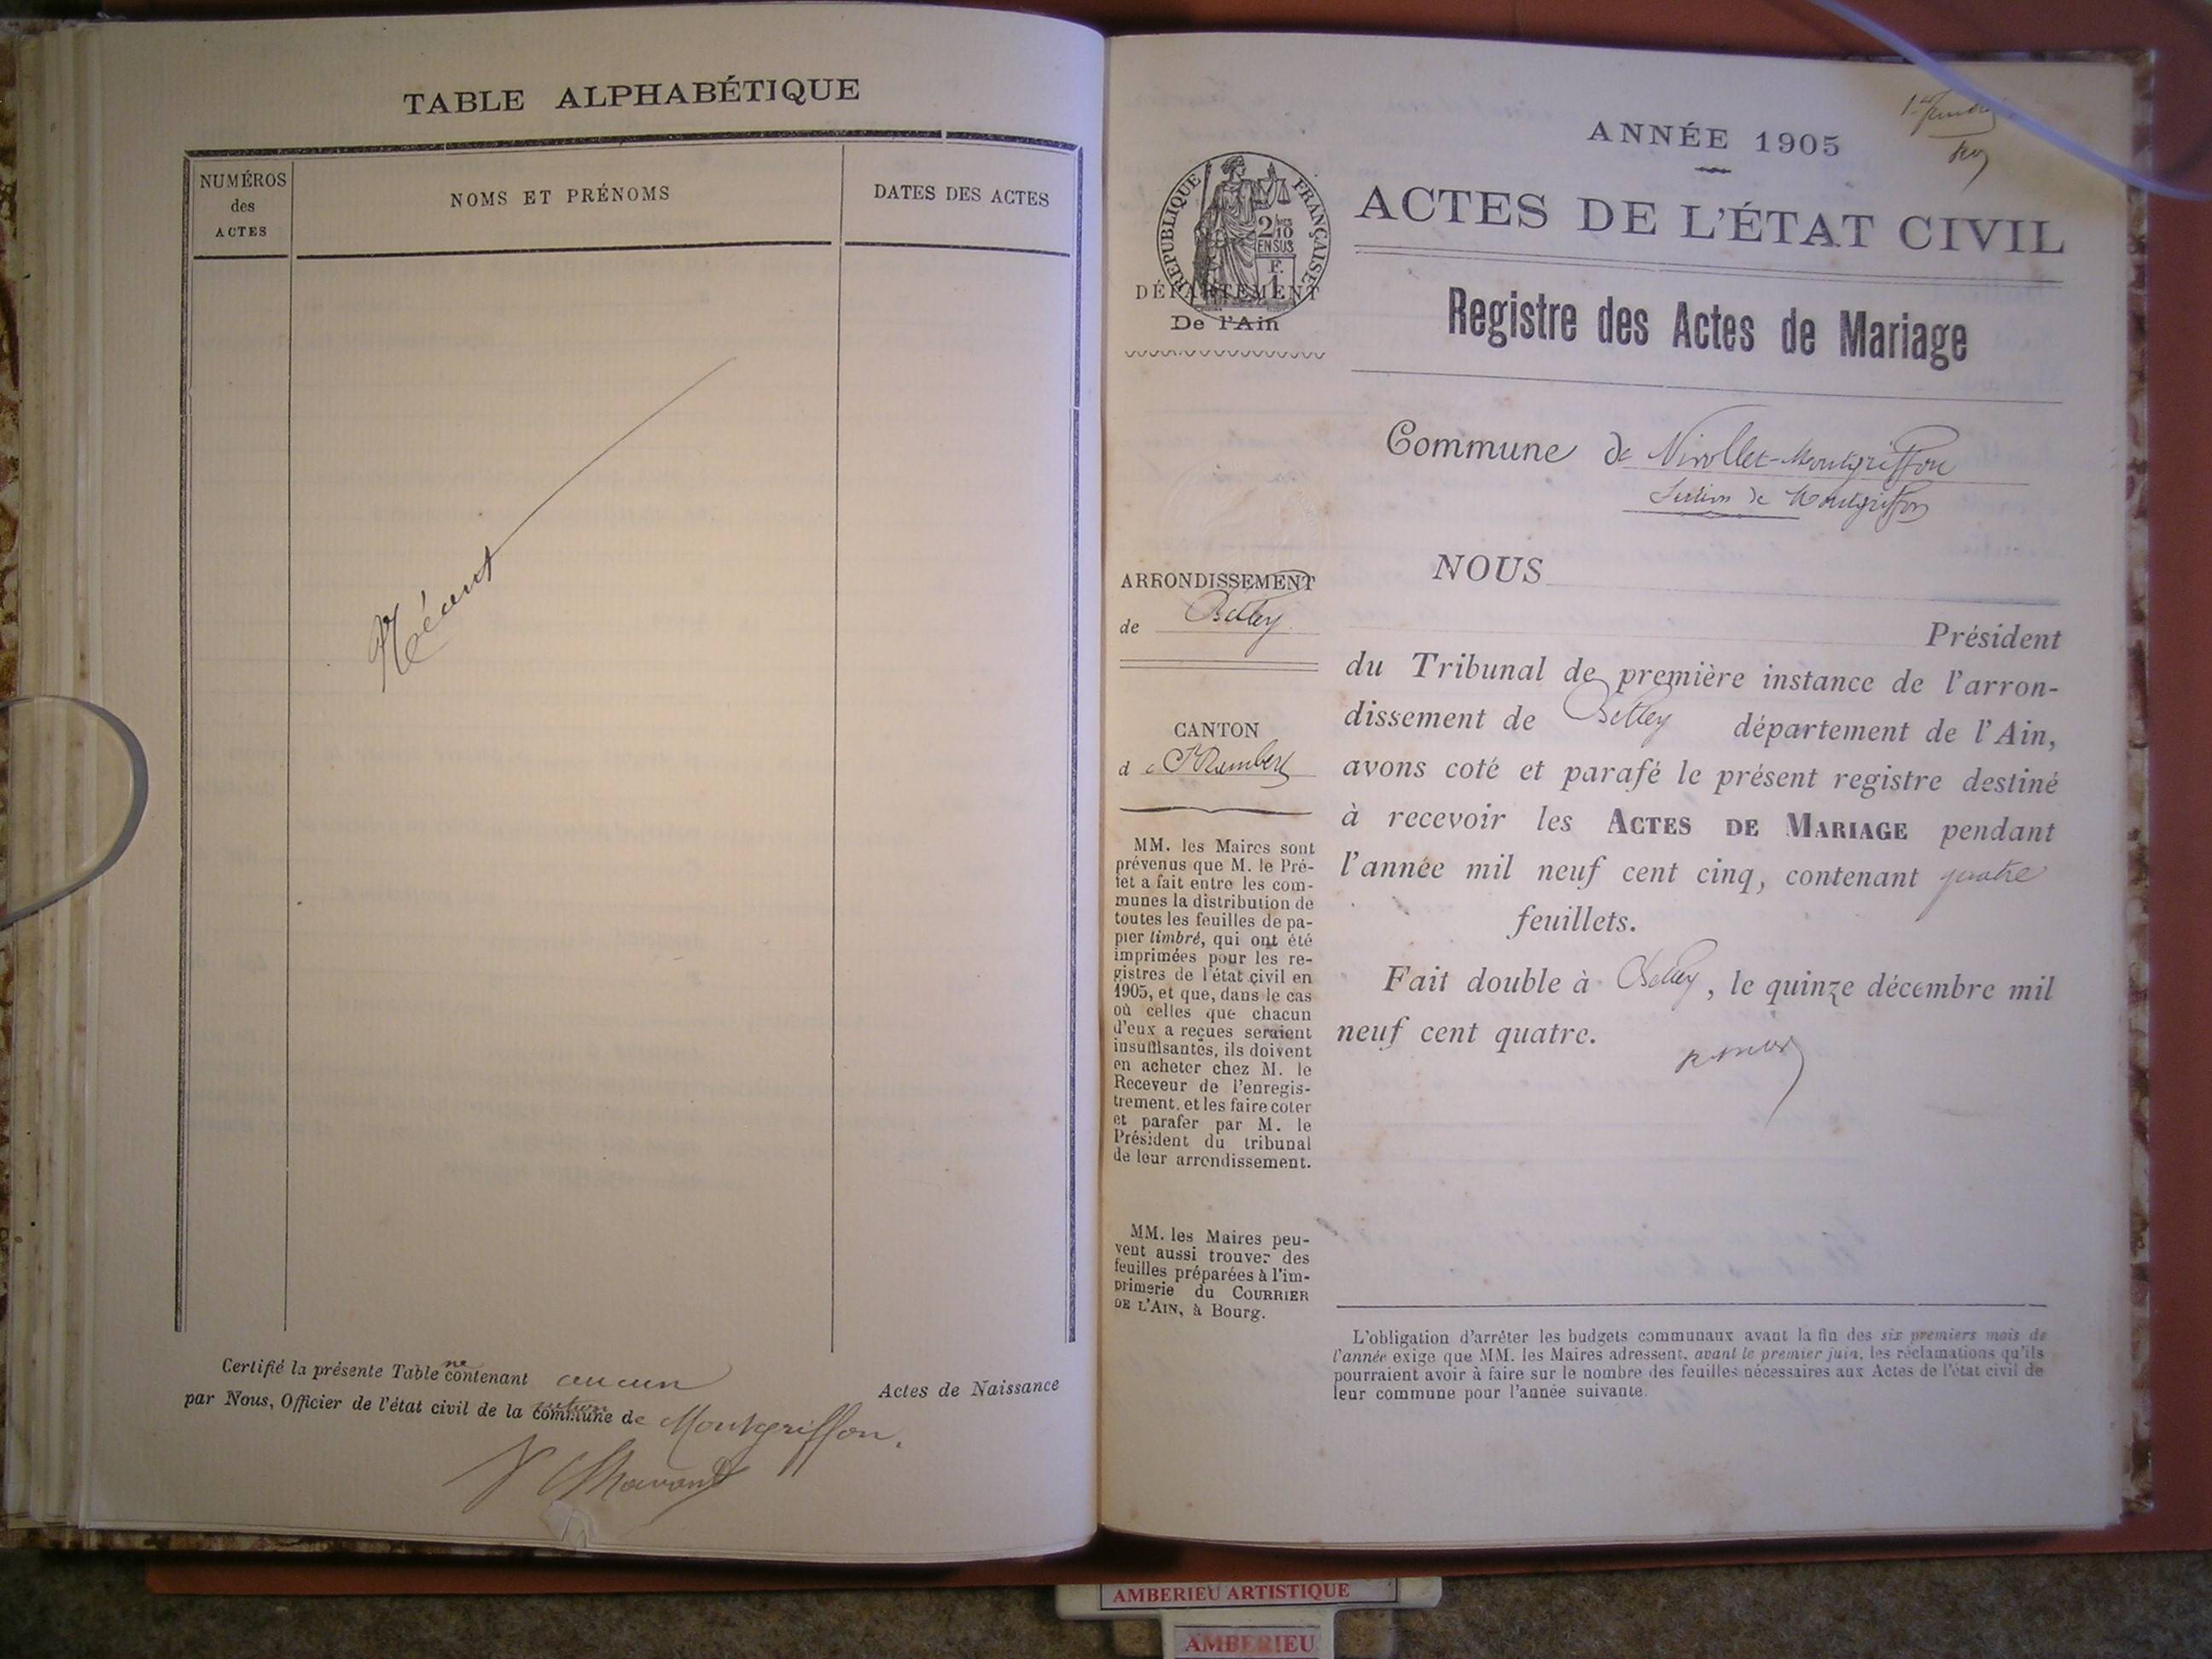 TABLE ALPHABÉTIQUE
NUMÉROS
des
ACTES
NOMS ET PRÉNOMS
DATES DES ACTES
Néant
Certifié la présente Table ne contenant aucun Actes de Naissance
par Nous, Officier de l'état civil de la commune section de Montgriffon.
ANNÉE 1905
ACTES DE L'ÉTAT CIVIL
Registre des Actes de Mariage
RÉPUBLIQUE FRANÇAISE
2/10
EN SUS
F.
1
DÉPARTEMENT
De l'Ain
Commune de Nivollet-Montgriffon
Section de Montgriffon
ARRONDISSEMENT
de Belley
CANTON
de St Rambert
MM. les Maires sont
prévenus que M. le Pré-
fet a fait entre les com-
munes la distribution de
toutes les feuilles de pa-
pier timbré, qui ont été
imprimées pour les re-
gistres de l'état civil en
1905, et que, dans le cas
où celles que chacun
d'eux a reçues seraient
insuffisantes, ils doivent
en acheter chez M. le
Receveur de l'enregis-
trement, et les faire coter
et parafer par M. le
Président du tribunal
de leur arrondissement.
MM. les Maires peu-
vent aussi trouver des
feuilles préparées à l'im-
primerie du COURRIER
DE L'AIN, à Bourg.
NOUS
Président
du Tribunal de première instance de l'arron-
dissement de Belley département de l'Ain,
avons coté et parafé le présent registre destiné
à recevoir les ACTES DE MARIAGE pendant
l'année mil neuf cent cinq, contenant quatre
feuillets.
Fait double à Belley, le quinze décembre mil
neuf cent quatre.
L'obligation d'arrêter les budgets communaux avant la fin des six premiers mois de
l'année exige que MM. les Maires adressent, avant le premier juin, les réclamations qu'ils
pourraient avoir à faire sur le nombre des feuilles nécessaires aux Actes de l'état civil de
leur commune pour l'année suivante.
AMBERIEU ARTISTIQUE
AMBERIEU